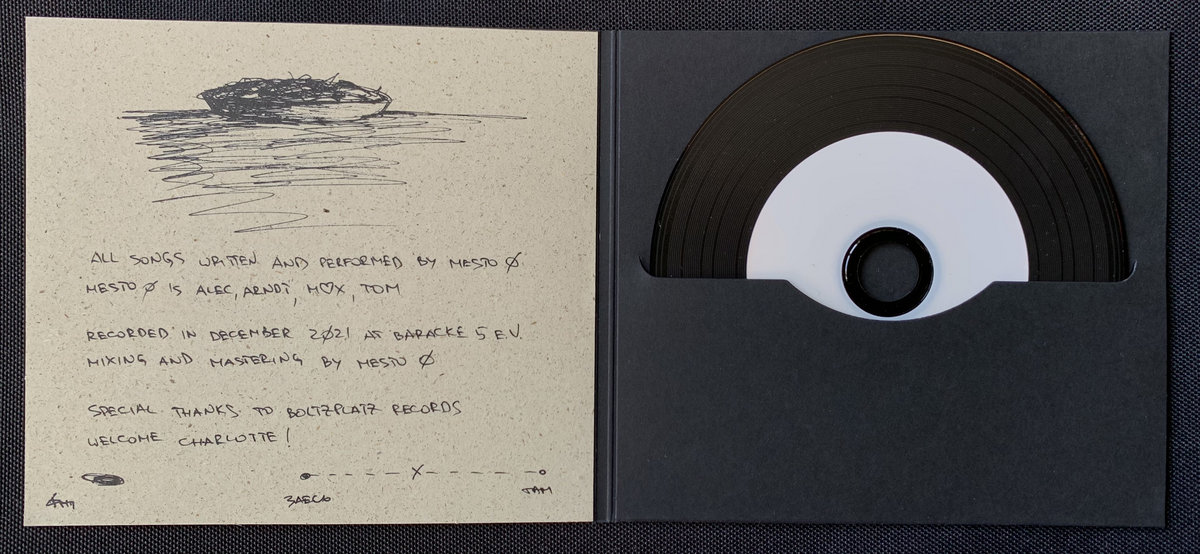 ALL SONGS WRITTEN AND PERFORMED BY MESTO Ø
MESTO Ø IS ALEC, ARNDT, M♡X, TOM
RECORDED IN DECEMBER 2Ø21 AT BARACKE 5 E.V.
MIXING AND MASTERING BY MESTO Ø
SPECIAL THANKS TO BOLTZPLATZ RECORDS
WELCOME CHARLOTTE!
ЗДЕСЬ ТАМ